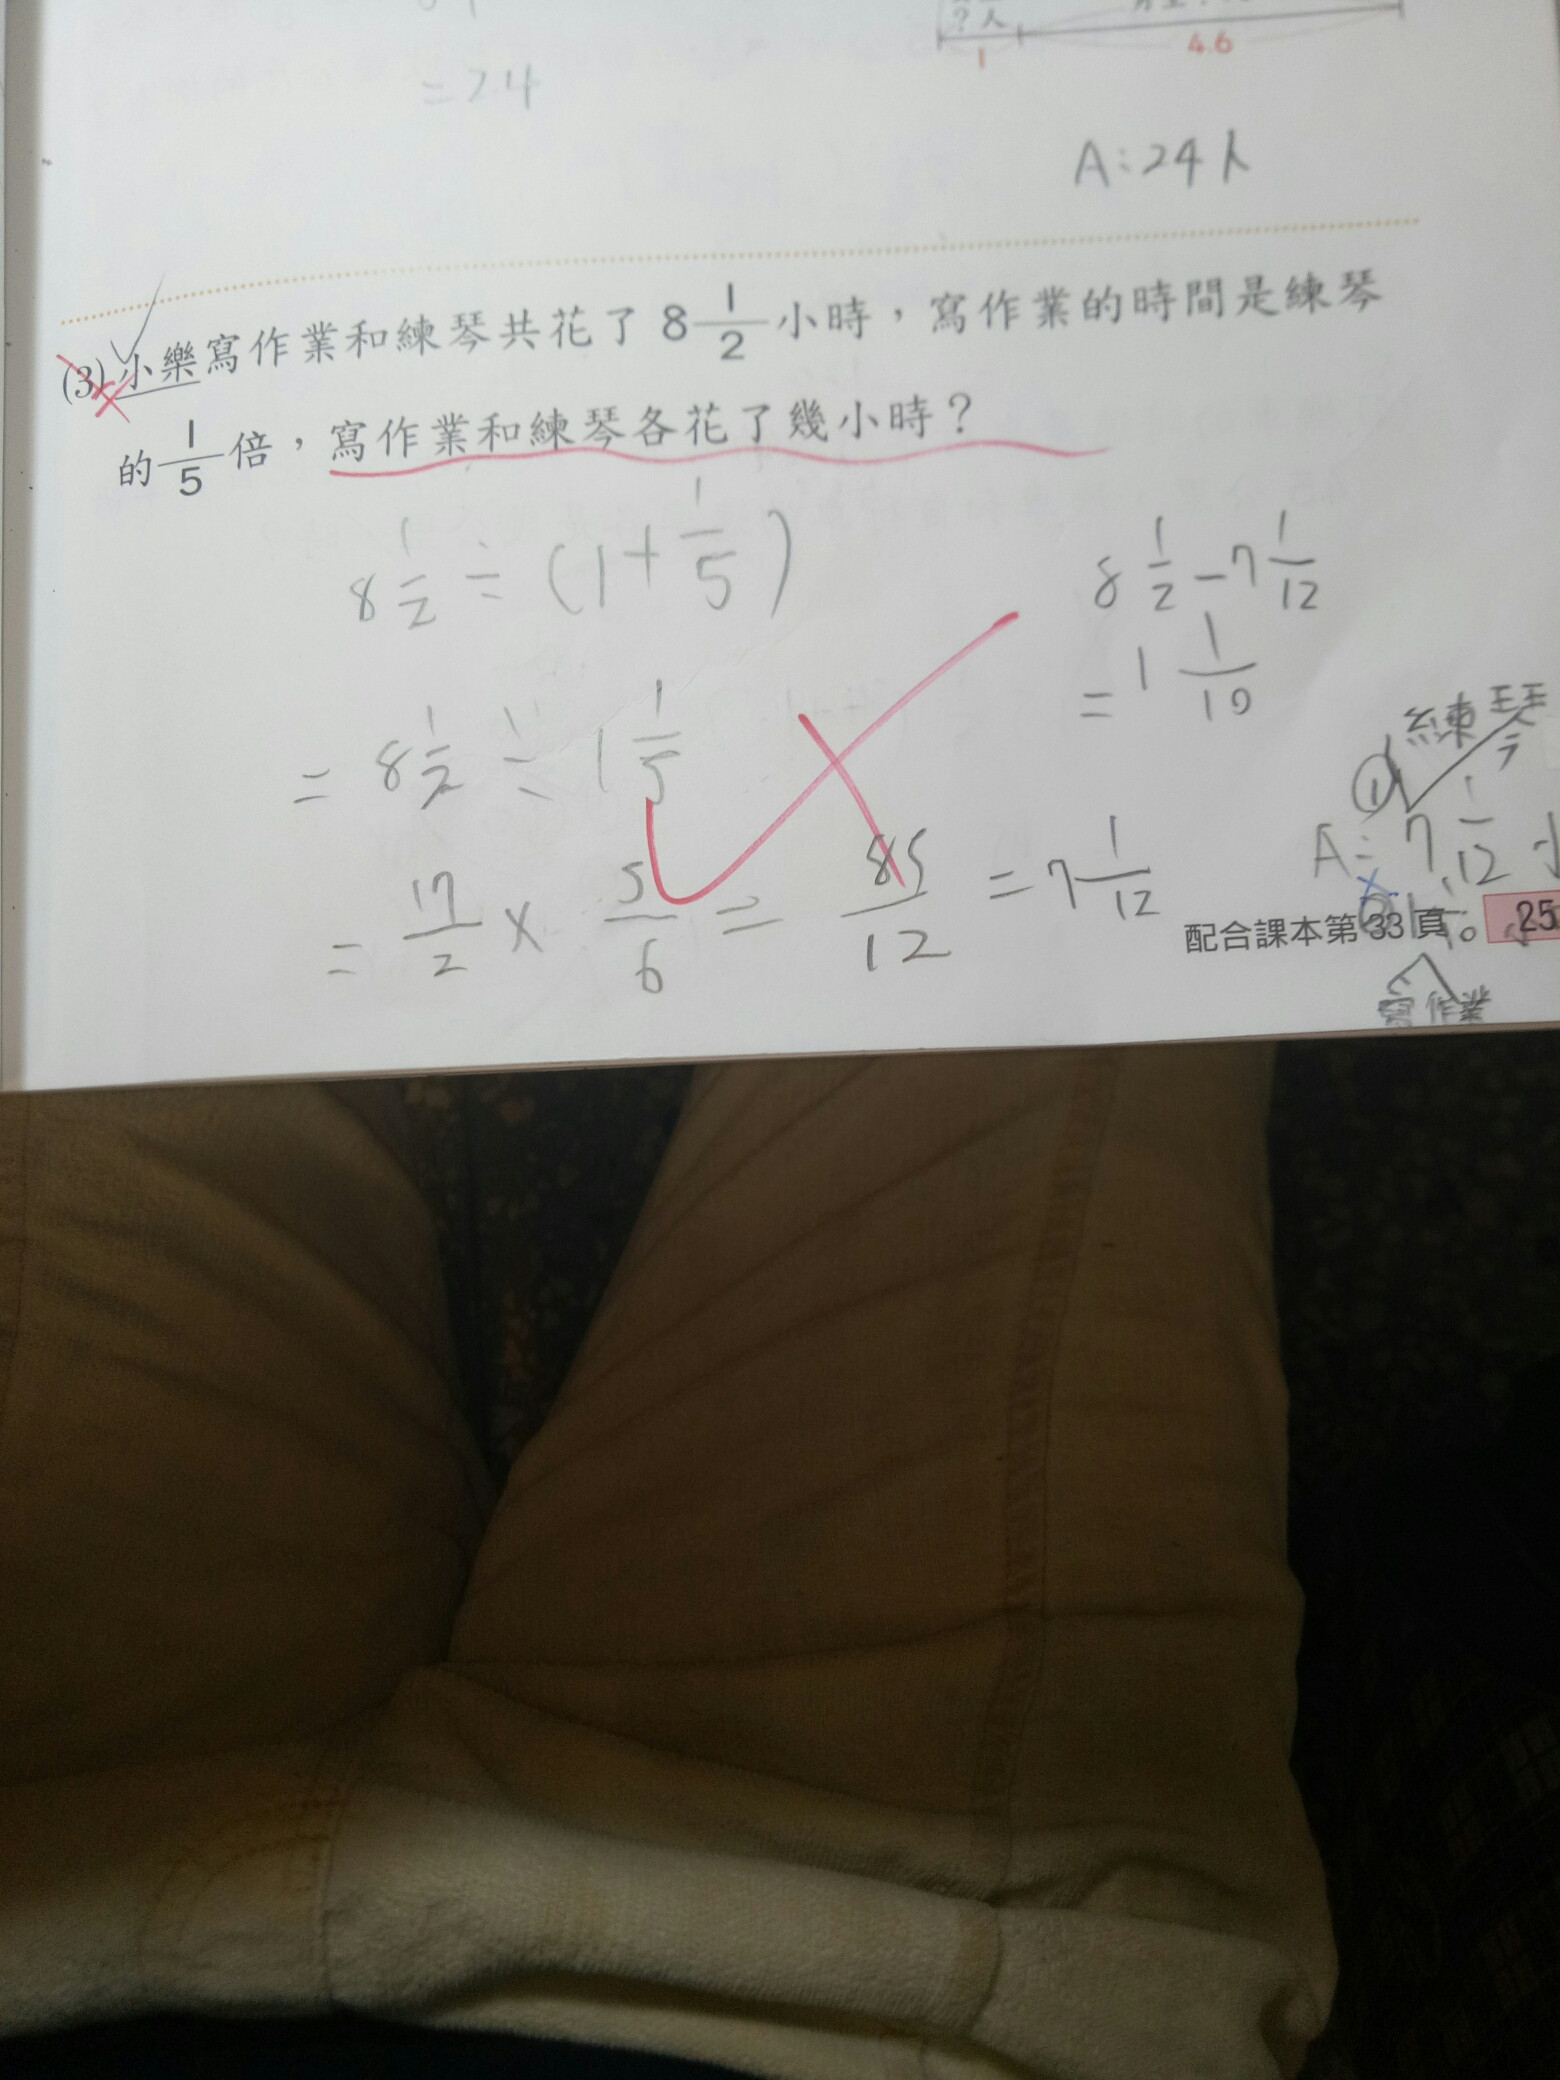 ?人
1
4.6
=24
A:24人
(3) 小樂寫作業和練琴共花了 8 1/2 小時，寫作業的時間是練琴
的 1/5 倍，寫作業和練琴各花了幾小時？
8 1/2 ÷ (1+ 1/5)
= 8 1/2 ÷ 1 1/5
= 17/2 × 5/6 = 85/12 = 7 1/12
8 1/2 - 7 1/12
= 1 1/10
① 練琴
A: 7 1/12 小
配合課本第 33 頁 25
寫作業